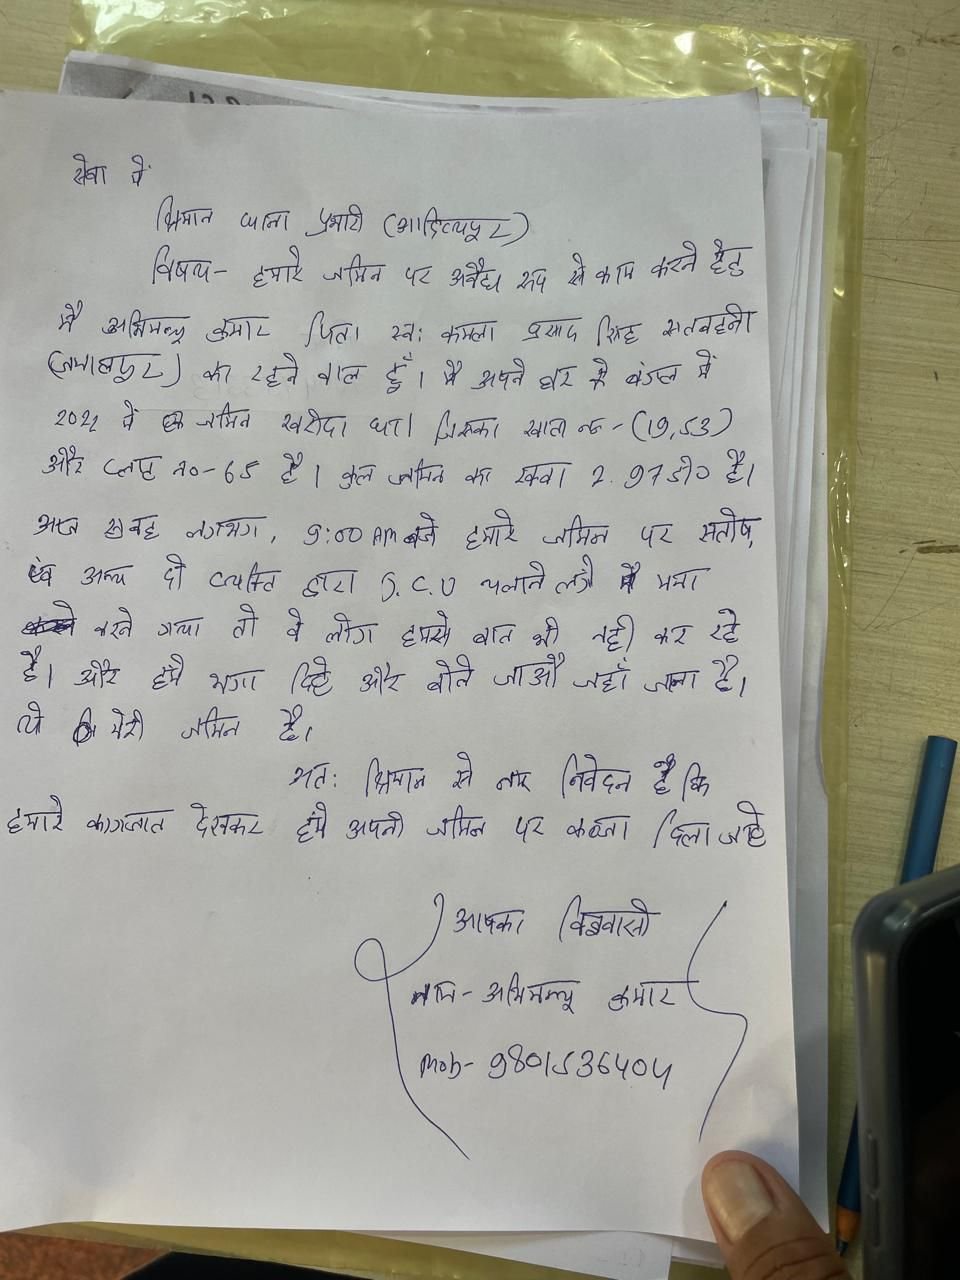 सेवा में
श्रिमान थाना प्रभारी (आदित्यपूर)
विषय- हमारे जमिन पर अवैध रूप से काम करने हेतु
मैं अभिमन्यू कुमार पिता स्व: कमला प्रसाद सिंह सतवहनी
का रहने वाल हूँ। मैं अपने घर के बगल में
2022 में जमिन खरीदा था। जिसका खाता न०-(19,53)
और प्लाट न०-65 है। कुल जमिन का रकवा 2.97डी० है।
आज सुबह लगभग, 9:00 AM बजे हमारे जमिन पर संतोष,
एवं अन्य दो व्यक्ति द्वारा चलाने लगे मैं मना
करने गया तो वे लोग हमसे बात भी नही कर रहे
है। और हमें भगा दिहे और बोले जाओ जहाँ जाना है।
ये मेरी जमिन है।
अत: श्रिमान से निवेदन है कि
हमारे कागजात देखकर हमें अपनी जमिन पर कब्जा दिला जाहे
आपका विश्वासी
नाम- अभिमन्यू कुमार
Mob- 9801536404